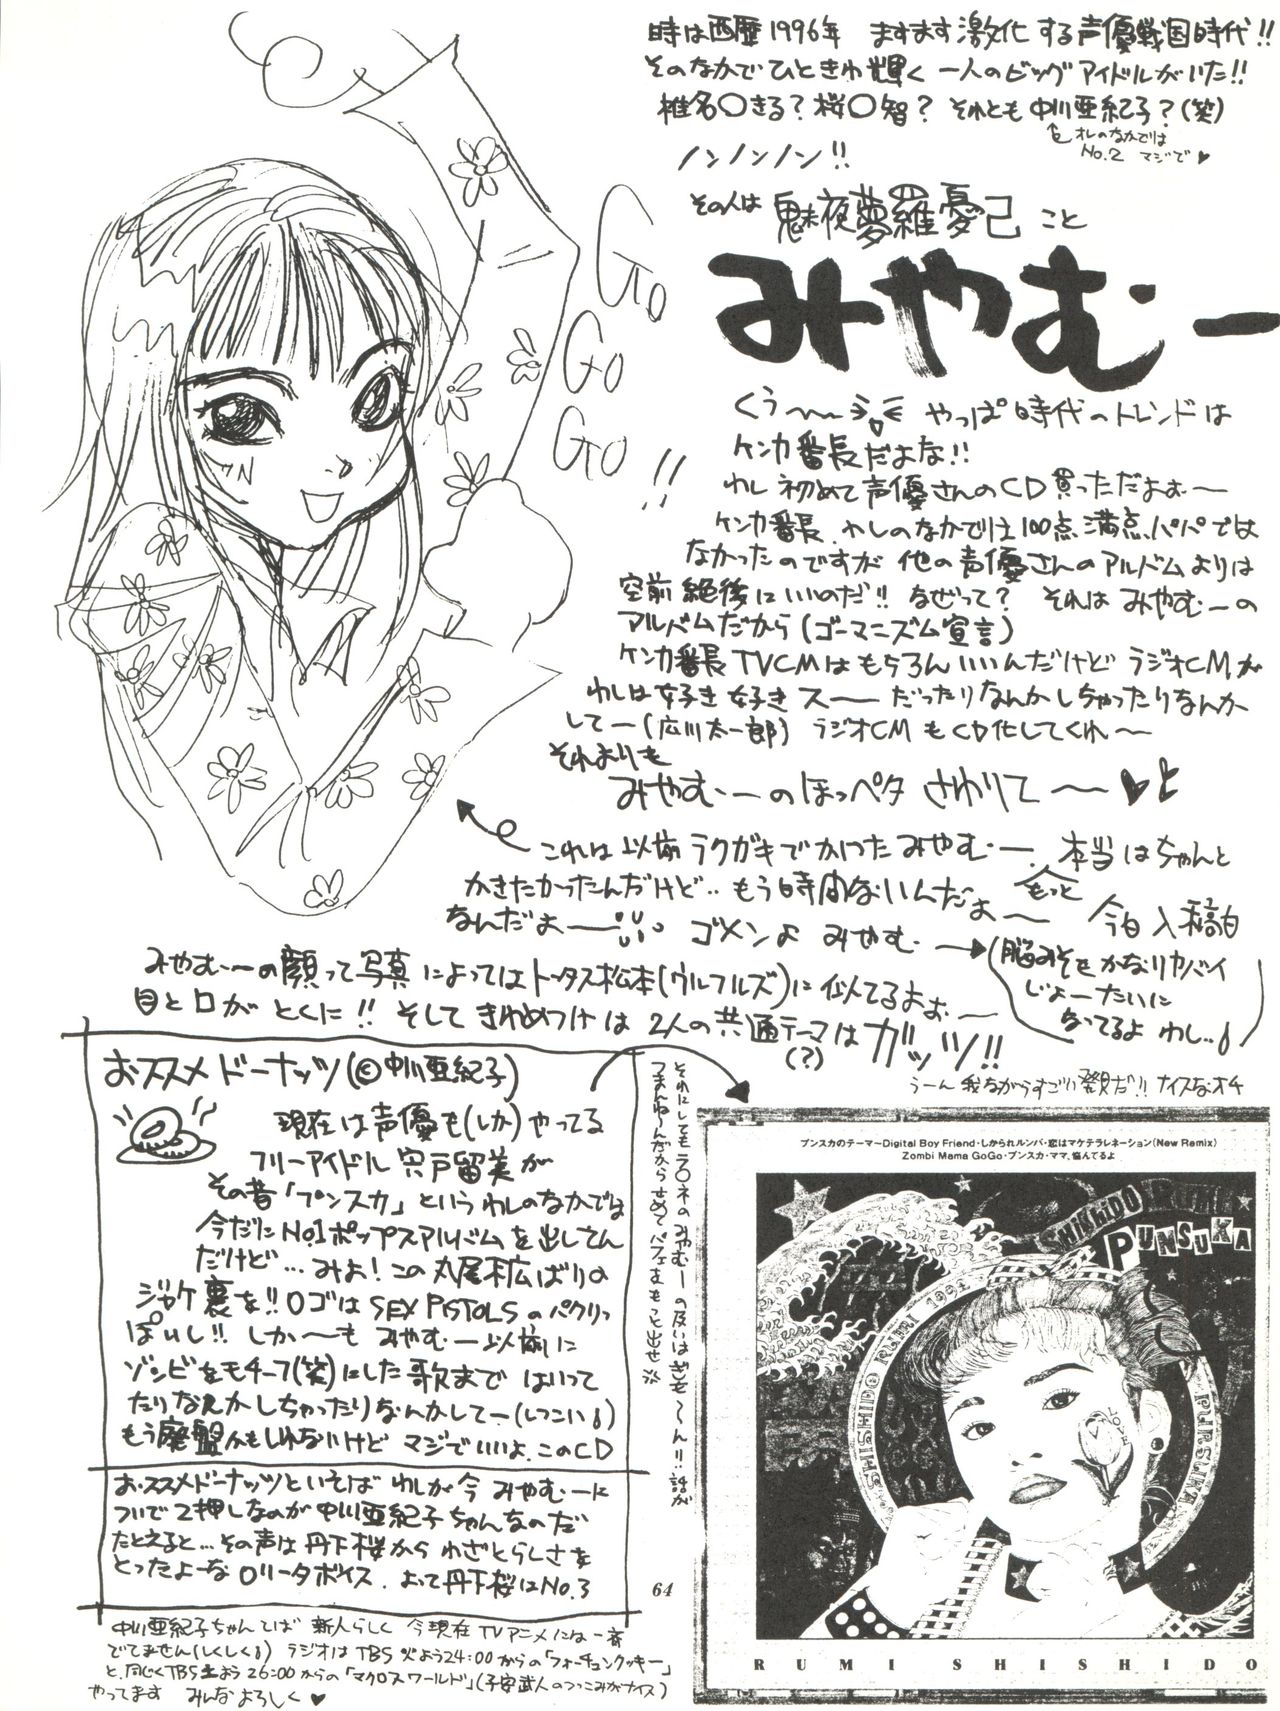 時は西暦1996年 ますます激化する声優戦国時代!!
そのなかでひときわ輝く一人のビッグアイドルがいた!!
椎名〇きる?桜〇智? それとも中川亜紀子?(笑)
↑オレのなかでは
No.2 マジで♥
ノンノンノン!!
その人は魅夜夢羅憂己こと
みやむー
Go
Go
Go
!!
くう〜 やっぱ時代のトレンドは
ケンカ番長だよな!!
わし初めて声優さんのCD買っただよお〜
ケンカ番長、わしのなかでは100点満点パパでは
なかったのですが他の声優さんのアルバムよりは
空前絶後にいいのだ!! なぜって? それはみやむーの
アルバムだから(ゴーマニズム宣言)
ケンカ番長TVCMはもちろんいいんだけどラジオCMが
わしは好き好きス〜だったりなんかしちゃったりなんか
してー(広川太一郎) ラジオCMもCD化してくれ〜
それよりも
みやむーのほっペタさわりて〜♥
これは以前ラクガキでかいたみやむー。本当はちゃんと
かきたかったんだけど‥もう時間ないんだよ〜
もっと
なんだよ〜 ゴメンよ みやむー→
今日入稿日
(脳みそもかなりヤバイ
じょーたいに
なってるよ わし‥)
みやむーの顔って写真によってはトータス松本(ウルフルズ)に似てるよお〜
目と口がとくに!! そしてきわめつけは2人の共通テーマはガッツ!!
(?)
うーん我ながらすごい発見だ!! ナイスなオチ
おススメドーナッツ(©中川亜紀子)
現在は声優も(しか)やってる
フリーアイドル宍戸留美が
その昔「プンスカ」というわしのなかでは
今だにNo.1ポップスアルバムを出してん
だけど…みよ!この丸尾末広ばりの
ジャケ裏を!!ロゴはSEX PISTOLSのパクリっ
ぽいし!! しか〜もみやむー以前に
ゾンビをモチーフ(笑)にした歌まではいって
たりなんかしちゃったりなんかしてー(しつこい)
もう廃盤かもしれないけどマジでいいよ、このCD
おススメドーナッツといえばわしが今みやむーに
ついで2押しなのが中川亜紀子ちゃんなのだ
たとえると…その声は丹下桜からわざとらしさを
とったよーなロリータボイス、よって丹下桜はNo.3
中川亜紀子ちゃんてば新人らしく今現在TVアニメには一斉
でてません(しくしく) ラジオはTBS火よう24:00からの「フォーチュンクッキー」
と、同じくTBS土よう26:00からの「マクロスワールド」(子安武人のつっこみがナイス)
やってます みんなよろしく♥
それにしてもラ〇ネのみやむーの扱いはぎも〜ん!!‥話が
つまんね〜んだからせめてパフェをもっと出せ
64
プンスカのテーマ〜Digital Boy Friend・しかられルンバ・恋はマケテラレネーション(New Remix)
Zombi Mama GoGo・プンスカ・ママ、悩んでるよ
SHISHIDO RUMI
PUNSUKA
SHISHIDO RUMI 1991
PUNSUKA
LOVE
RUMI SHISHIDO